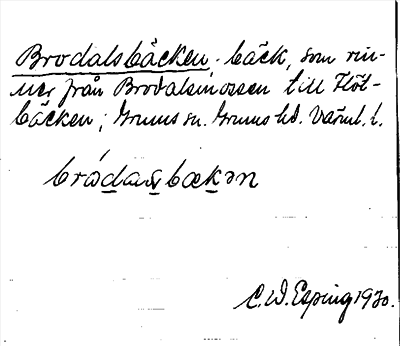 Brodalsbäcken, bäck, som rin-
ner från Brodalsmossen till Flöt-
bäcken; Grums sn. Grums hd. Värml. l.
brodasbäkən
C. W. Esping 1930.